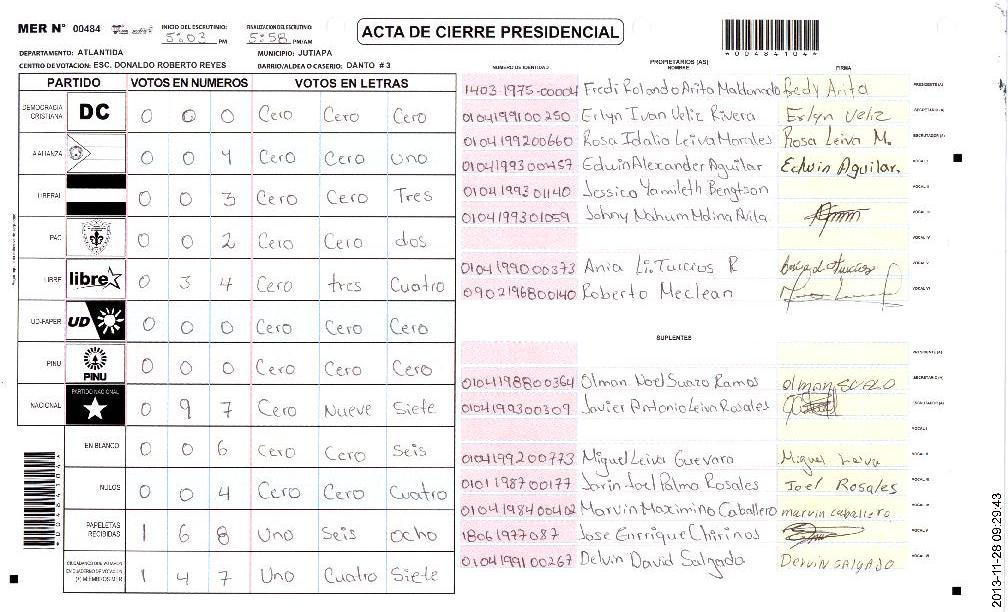 MER N° 00484 INICIO DEL ESCRUTINIO: 5:03 PM FINALIZACION DEL ESCRUTINIO: 5:58 PM/AM
ACTA DE CIERRE PRESIDENCIAL
*00484104*
DEPARTAMENTO: ATLANTIDA MUNICIPIO: JUTIAPA
CENTRO DE VOTACION: ESC. DONALDO ROBERTO REYES BARRIO/ALDEA O CASERIO: DANTO # 3
PARTIDO VOTOS EN NUMEROS VOTOS EN LETRAS
DEMOCRACIA CRISTIANA DC 0 0 0 Cero Cero Cero
ALIANZA 0 0 4 Cero Cero uno
LIBERAL 0 0 3 Cero Cero Tres
PAC 0 0 2 Cero Cero dos
LIBRE libre 0 3 4 Cero tres Cuatro
UD-FAPER UD 0 0 0 Cero Cero Cero
PINU PINU 0 0 0 Cero Cero Cero
NACIONAL PARTIDO NACIONAL 0 9 7 Cero Nueve Siete
EN BLANCO 0 0 6 Cero Cero Seis
NULOS 0 0 4 Cero Cero Cuatro
PAPELETAS RECIBIDAS 1 6 8 Uno Seis ocho
CIUDADANOS QUE VOTARON EN CUADERNO DE VOTACION (+) MIEMBROS MER 1 4 7 Uno Cuatro Siete
PROPIETARIOS (AS)
NUMERO DE IDENTIDAD NOMBRE FIRMA
1403-1975-00004 Fredi Rolando Arita Maldonado fredy Arita PRESIDENTE (A)
0104199100250 Erlyn Ivan Veliz Rivera Erlyn Veliz SECRETARIO (A)
0104199200660 Rosa Idalia Leiva Morales Rosa Leiva M. ESCRUTADOR (A)
0104199300457 Edwin Alexander Aguilar Edwin Aguilar. VOCAL I
0104199301140 Jessica Yamileth Bengtson VOCAL II
0104199301059 Johny Nahum Mdina Avila VOCAL III
VOCAL IV
0104199000373 Ania Li. Turcios R VOCAL V
0902196800140 Roberto Meclean VOCAL VI
SUPLENTES
PRESIDENTE (A)
0104198800364 Olman Noel Suazo Ramos olman SUAZO SECRETARIO (A)
0104199300309 Javier Antonio Leiva Rosales ESCRUTADOR (A)
VOCAL I
0104199200773 Miguel Leiva Guevara Miguel Leiva VOCAL II
0101198700177 Jarin Joel Palma Rosales Joel Rosales VOCAL III
0104198400402 Marvin Maximino Caballero marvin caballero VOCAL IV
18061977087 Jose Enrrique Chirinos VOCAL V
0104199100267 Delvin David Salgado Delvin SALGADO VOCAL VI
*00484104*
2013-11-28 09:29:43